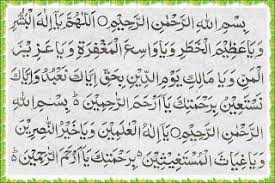 بِسْمِ اللهِ الرَّحْمٰنِ الرَّحِيْمِ ○ اَللّٰهُمَّ يَا اِلٰهَ الْبَشَرِ
وَيَا عَظِيْمَ الْخَطَرِ وَيَا وَاسِعَ الْمَغْفِرَةِ وَيَا عَزِيْزَ
الْمَنِّ وَيَا مَالِكَ يَوْمِ الدِّيْنِ بِحَقِّ اِيَّاكَ نَعْبُدُ وَاِيَّاكَ
نَسْتَعِيْنُ بِرَحْمَتِكَ يَا اَرْحَمَ الرَّاحِمِيْنَ ○ بِسْمِ اللهِ
الرَّحْمٰنِ الرَّحِيْمِ ○ يَا اِلٰهَ الْعٰلَمِيْنَ وَيَا خَيْرَ النّٰصِرِيْنَ
وَيَا غِيَاثَ الْمُسْتَغِيْثِيْنَ بِرَحْمَتِكَ يَا اَرْحَمَ الرّٰحِمِيْنَ ○